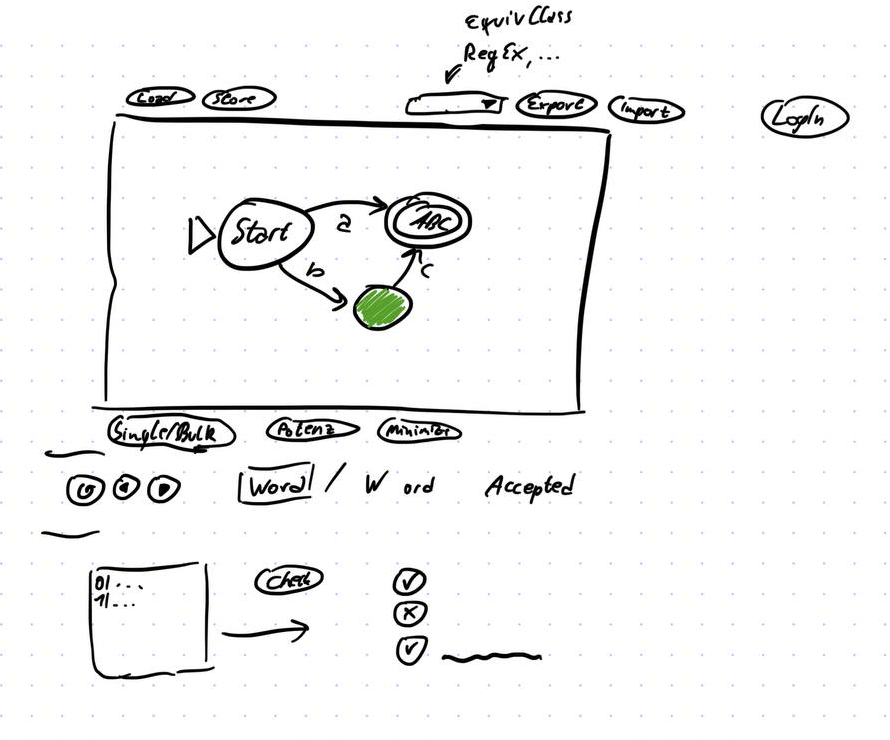 EquivClass
RegEx, ...
Load Store Export Import LogIn
Start a ABC
b c
Single/Bulk Potenz Minimizi
Word / W ord Accepted
01...
11...
Check